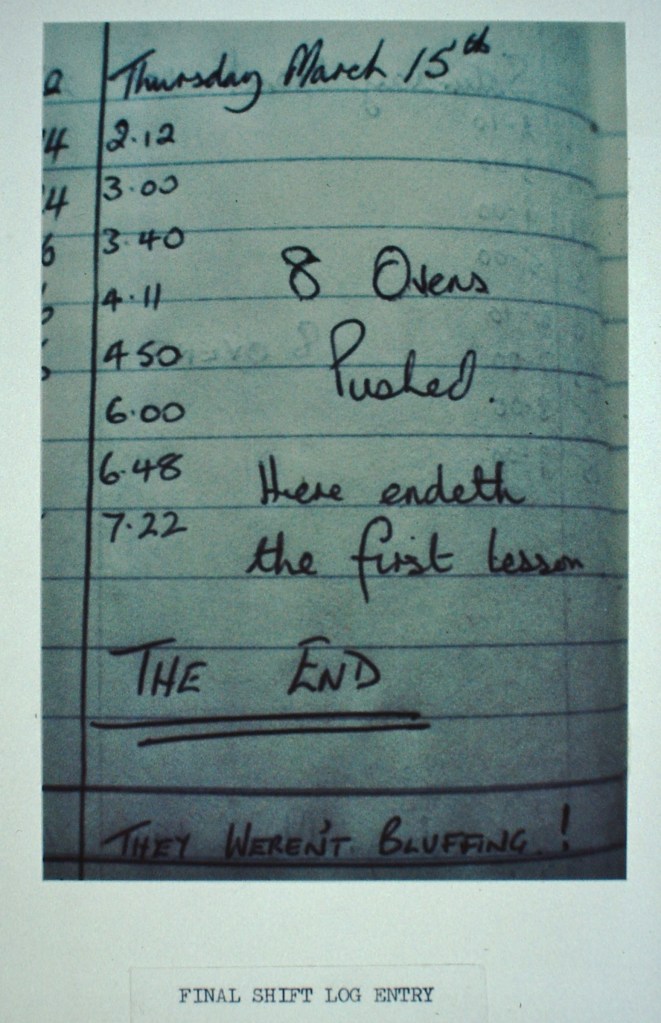 Thursday March 15th
2.12
3.00
3.40
4.11
4 50
6.00
6.48
7.22
8 Ovens
Pushed.
Here endeth
the first lesson
THE END
THEY WEREN'T BLUFFING. !
FINAL SHIFT LOG ENTRY